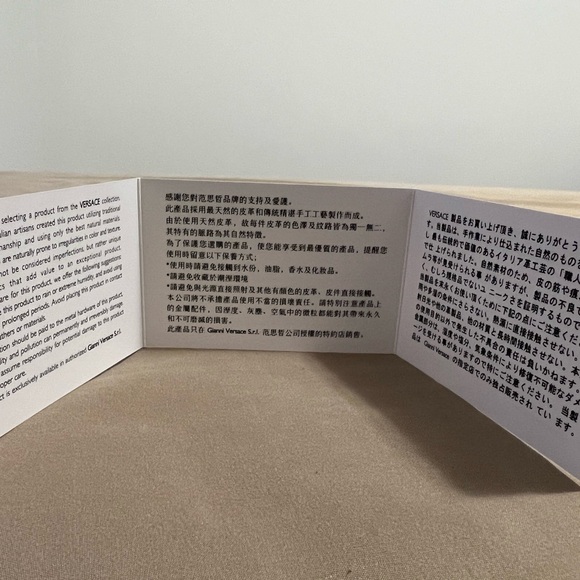 selecting a product from the VERSACE collection.
alian artisans created this product utilizing traditional
manship and using only the best natural materials.
are naturally prone to irregularities in color and texture.
not be considered imperfections, but rather unique
cts that add value to an exceptional product.
are for this product, we offer the following suggestions
this product to rain or extreme humidity, and avoid using
prolonged periods. Avoid placing this product in contact
thers or materials.
ention should be paid to the metal hardware of this product.
ility and pollution can permanently and irreversibly damage
assume responsibility for potential damage to this product
oper care.
ct is exclusively available in authorized Gianni Versace S.r.l.
感謝您對范思哲品牌的支持及愛護。
此產品採用最天然的皮革和傳統精湛手工工藝製作而成。
由於使用天然皮革，故每件皮革的色澤及紋路皆為獨一無二，
其特有的脈路為其自然特徵。
為了保護您選購的產品，使您能享受到最優質的產品，提醒您
使用時留意以下保養方式；
*使用時請避免接觸到水份，油脂，香水及化妝品。
*請避免收藏於潮溼環境
*請避免與光源直接照射及其他有顏色的皮革，皮件直接接觸。
本公司將不承擔產品使用不當的損壞責任。請特別注意產品上
的金屬配件，因溼度，灰塵，空氣中的微粒都能對其帶來永久
和不可磨滅的損害。
此產品只在 Gianni Versace S.r.l. 范思哲公司授權的特約店銷售。
VERSACE 製品をお買い上げ頂き、誠にありがとう
す。当製品は、手作業により仕込まれた自然のものを
し、最も伝統的で価値のあるイタリア革工芸の「職人
て仕上げられました。自然素材のため、皮の筋や傷
ムラ等が見受けられる事がありますが、製品の不良で
く、むしろ弊店でないユニークさを証明するものです。